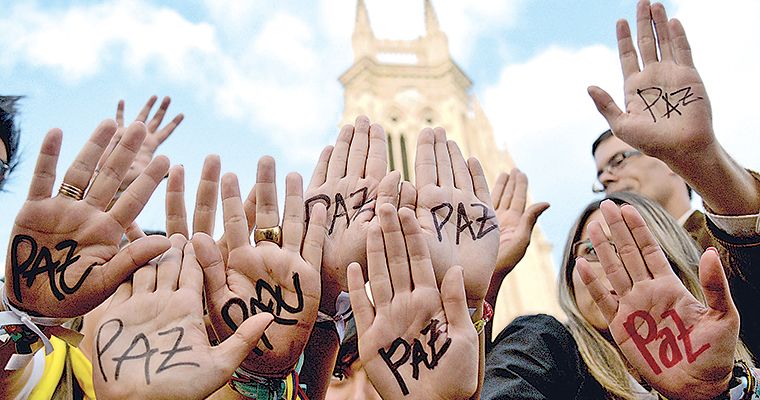 PAZ
PAZ
PAZ
PAZ
PAZ
PAZ
PAZ
PAZ